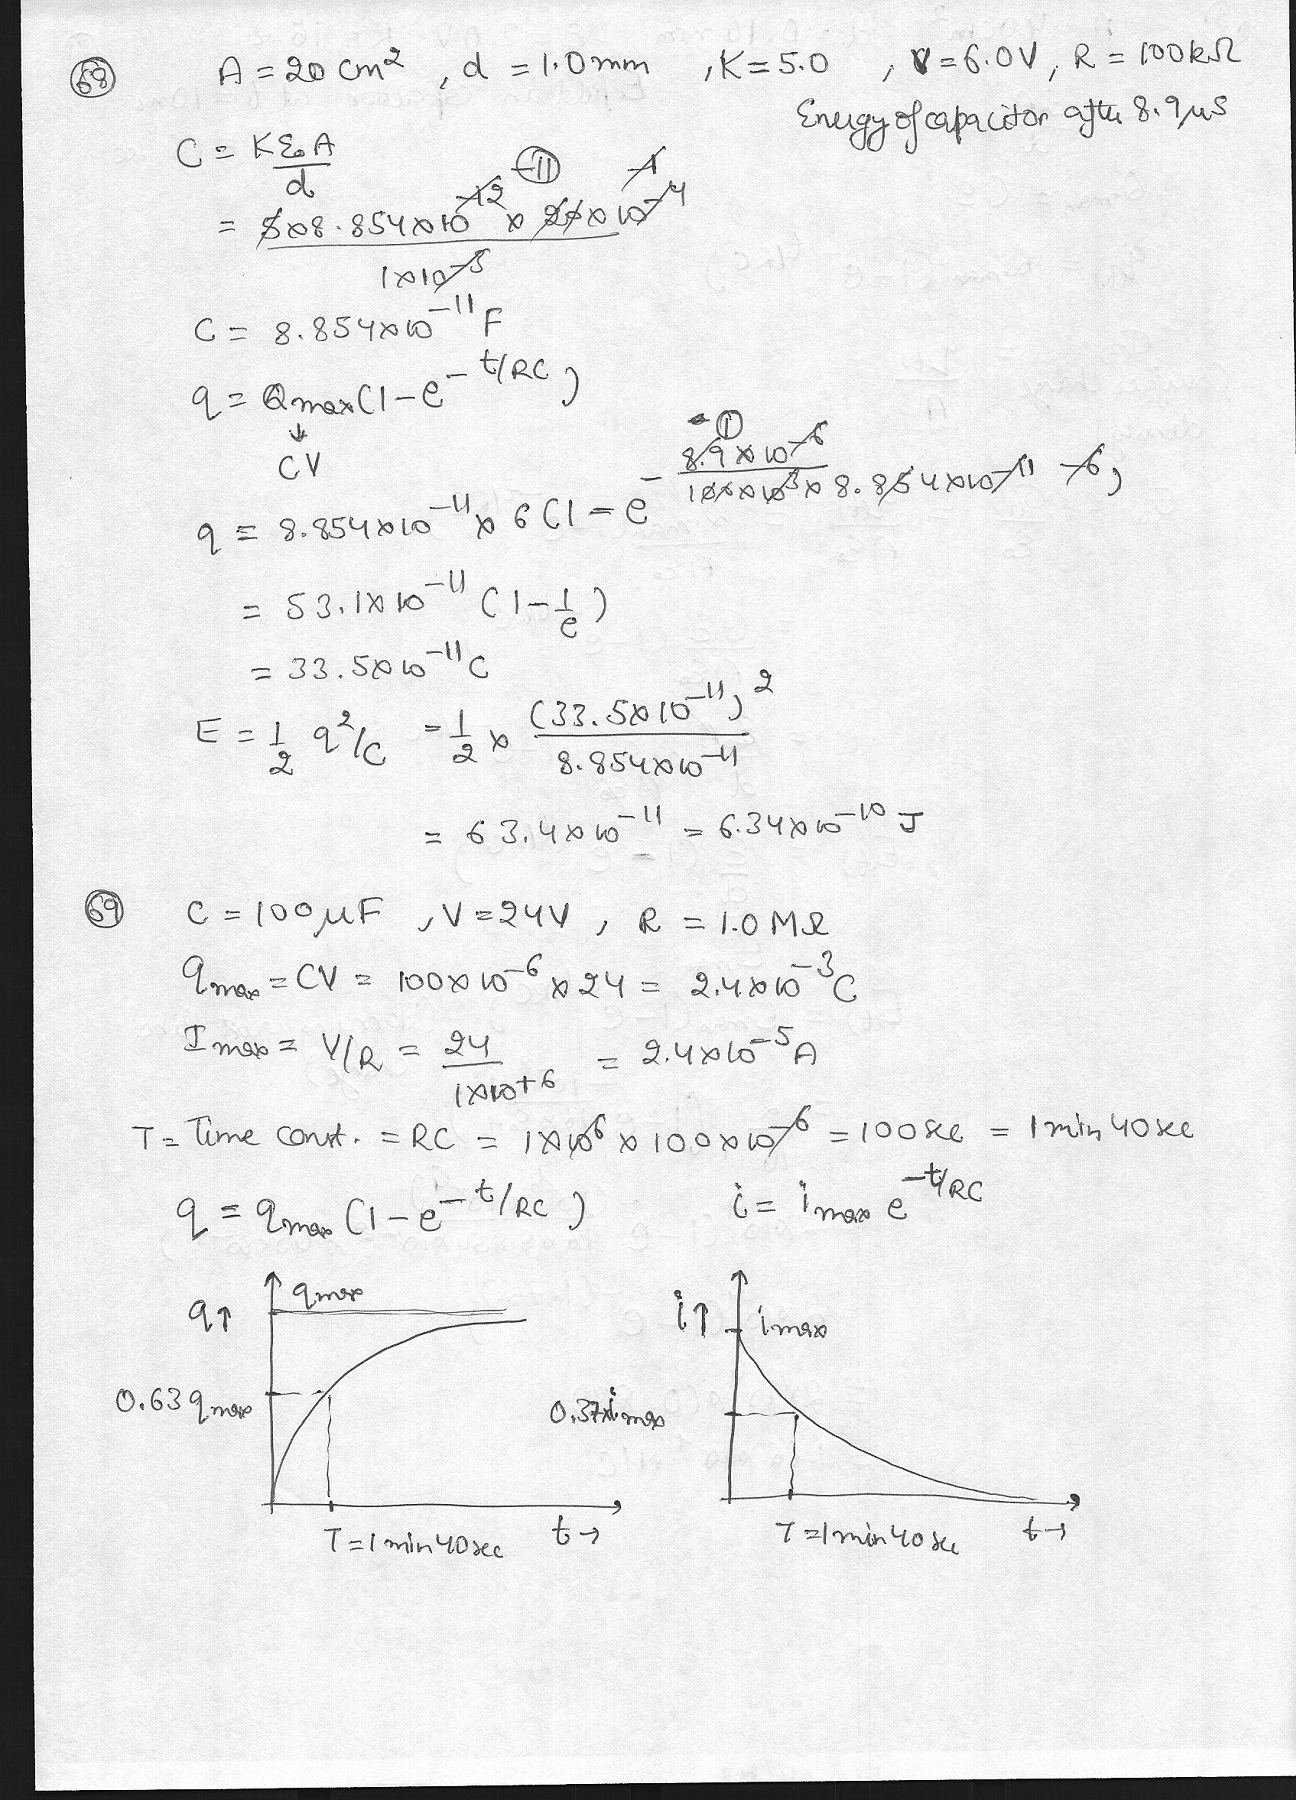 68 A = 20 cm² , d = 1.0mm , K = 5.0 , V = 6.0V , R = 100kΩ
Energy of capacitor after 8.9μs
C = Kε₀A / d
= 5×8.854×10⁻¹² × 20×10⁻⁴ / 1×10⁻³
-11 -1
C = 8.854×10⁻¹¹ F
q = Qmax(1-e^-t/RC)
↓
CV
q = 8.854×10⁻¹¹ × 6 (1 - e^- 8.9×10⁻⁶ / 100×10³ × 8.854×10⁻¹¹ -6)
1
= 53.1×10⁻¹¹ (1 - 1/e)
= 33.5×10⁻¹¹ C
E = 1/2 q²/C = 1/2 × (33.5×10⁻¹¹)² / 8.854×10⁻¹¹
= 63.4×10⁻¹¹ = 6.34×10⁻¹⁰ J
69 C = 100μF , V = 24V , R = 1.0 MΩ
qmax = CV = 100×10⁻⁶ × 24 = 2.4×10⁻³ C
Imax = V/R = 24 / 1×10⁺⁶ = 2.4×10⁻⁵ A
T = Time const. = RC = 1×10⁶ × 100×10⁻⁶ = 100 sec = 1 min 40 sec
q = qmax (1-e^-t/RC) i = imax e^-t/RC
q↑ qmax
0.63 qmax
T = 1 min 40 sec t→
i↑ imax
0.37 imax
T = 1 min 40 sec t→